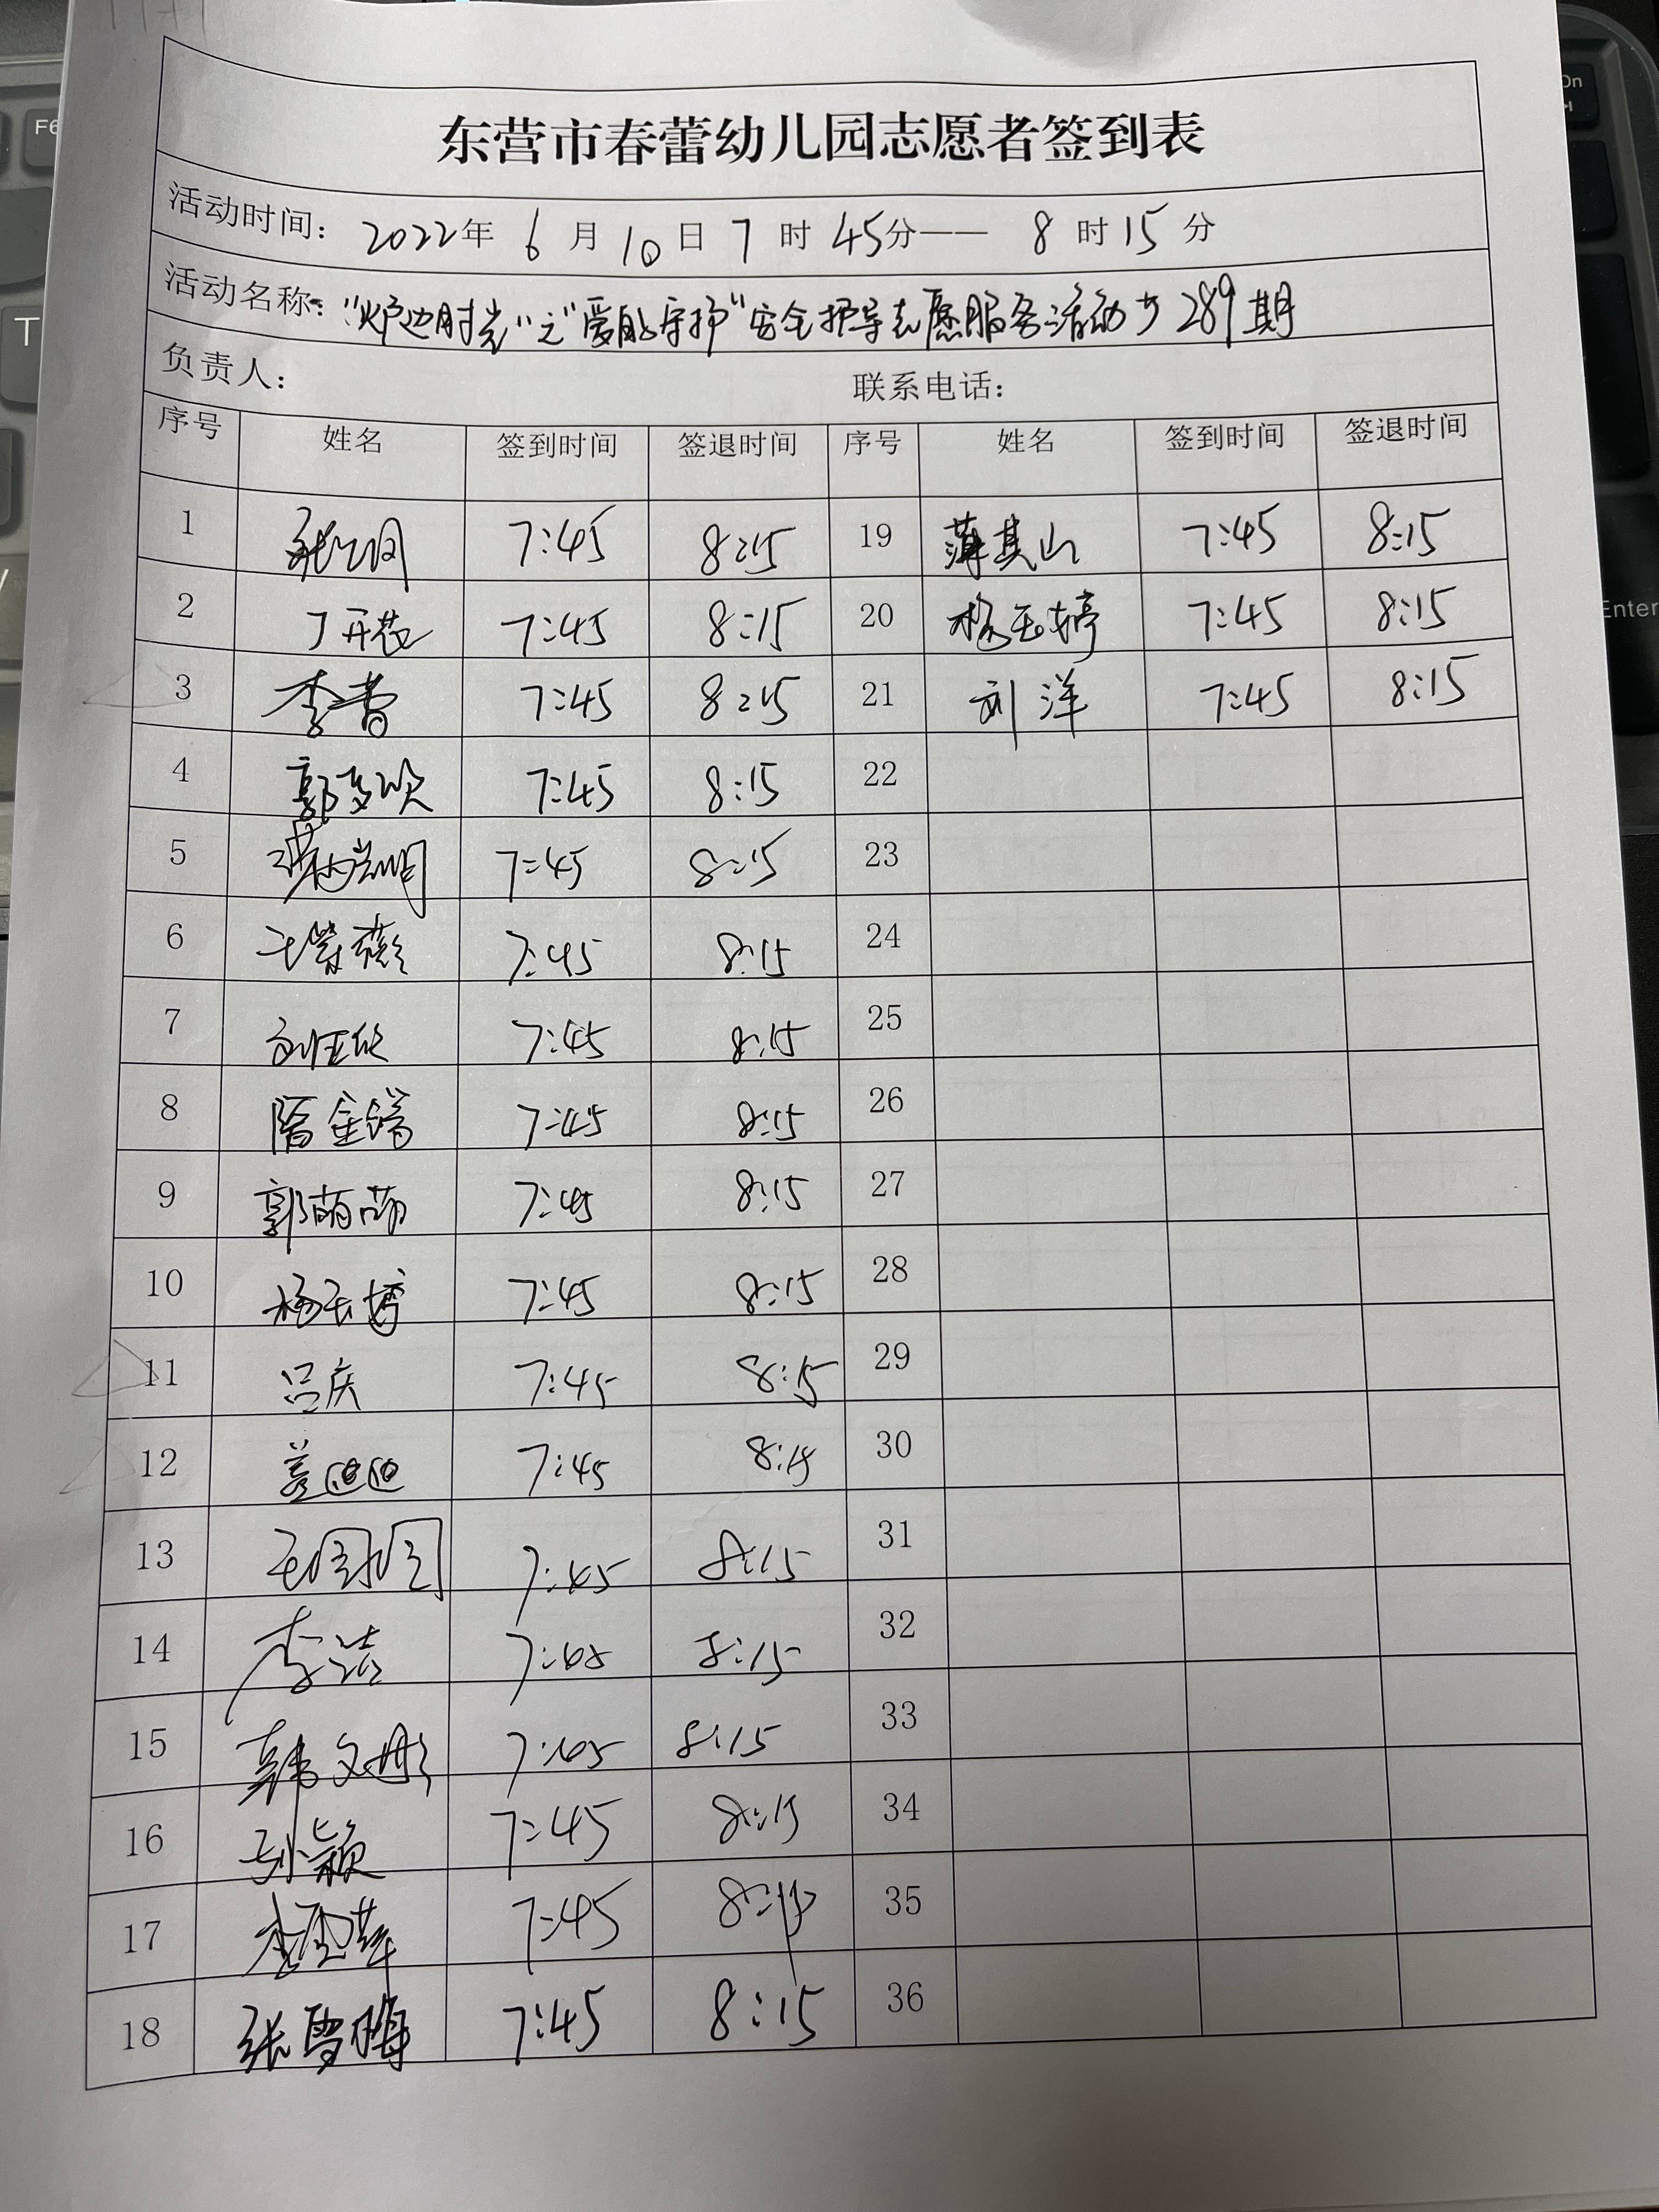 东营市春蕾幼儿园志愿者签到表
活动时间: 2022年 6 月 10 日 7 时 45分—— 8 时 15 分
活动名称: "炉边时光"之"爱的守护"安全护导志愿服务活动第289期
负责人: 联系电话:
序号 姓名 签到时间 签退时间 序号 姓名 签到时间 签退时间
1 7:45 8:15 19 薄其山 7:45 8:15
2 丁开花 7:45 8:15 20 杨玉婷 7:45 8:15
3 李营 7:45 8:15 21 刘洋 7:45 8:15
4 郭梦欣 7:45 8:15 22
5 7:45 8:15 23
6 7:45 8:15 24
7 7:45 8:15 25
8 隋金鸽 7:45 8:15 26
9 郭萌萌 7:45 8:15 27
10 杨玉婷 7:45 8:15 28
11 吕庆 7:45 8:15 29
12 盖迪迪 7:45 8:15 30
13 7:45 8:15 31
14 李洁 7:45 8:15 32
15 韩文彤 7:45 8:15 33
16 孙颖 7:45 8:15 34
17 7:45 8:15 35
18 张雪梅 7:45 8:15 36
F6
T
Enter